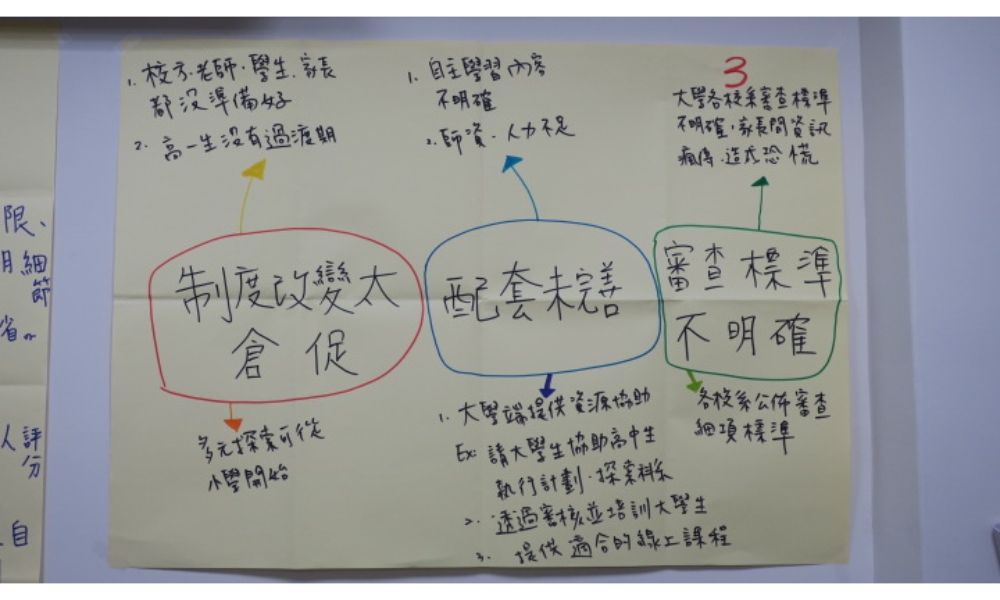 1. 校方、老師、學生、家長
都沒準備好
2. 高一生沒有過渡期
制度改變太
倉促
多元探索可從
小學開始
1. 自主學習內容
不明確
2. 師資、人力不足
配套未完善
1. 大學端提供資源協助
Ex: 請大學生協助高中生
執行計劃、探索科系
2. 透過審核並培訓大學生
3. 提供適合的線上課程
3
大學各校系審查標準
不明確,家長間資訊
瘋傳,造成恐慌
審查標準
不明確
各校系公佈審查
細項標準
限、
細節
省。
人評分
自